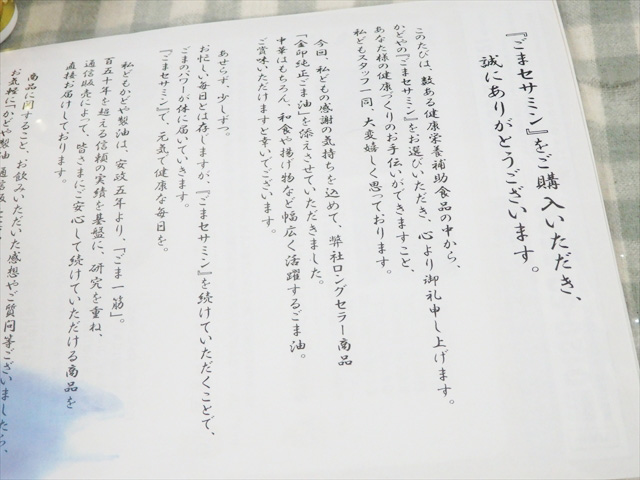 『ごまセサミン』をご購入いただき、
誠にありがとうございます。
このたびは、数ある健康栄養補助食品の中から、
かどやの『ごまセサミン』をお選びいただき、心より御礼申し上げます。
あなた様の健康づくりのお手伝いができますこと、
私どもスタッフ一同、大変嬉しく思っております。
今回、私どもの感謝の気持ちを込めて、弊社ロングセラー商品
「金印純正ごま油」を添えさせていただきました。
中華はもちろん、和食や揚げ物など幅広く活躍するごま油。
ご賞味いただけますと幸いでございます。
あせらず、少しずつ。
お忙しい毎日とは存じますが、『ごまセサミン』を続けていただくことで、
ごまのパワーが体に届いていきます。
『ごまセサミン』で、元気で健康な毎日を。
私どもかどや製油は、安政五年より、「ごま一筋」。
百五十年を超える信頼の実績を基盤に、研究を重ね、
通信販売によって、皆さまにご安心して続けていただける商品を
直接お届けしております。
商品に関すること、お飲みいただいた感想やご質問等ございましたら、
お気軽に「かどや製油 通信販